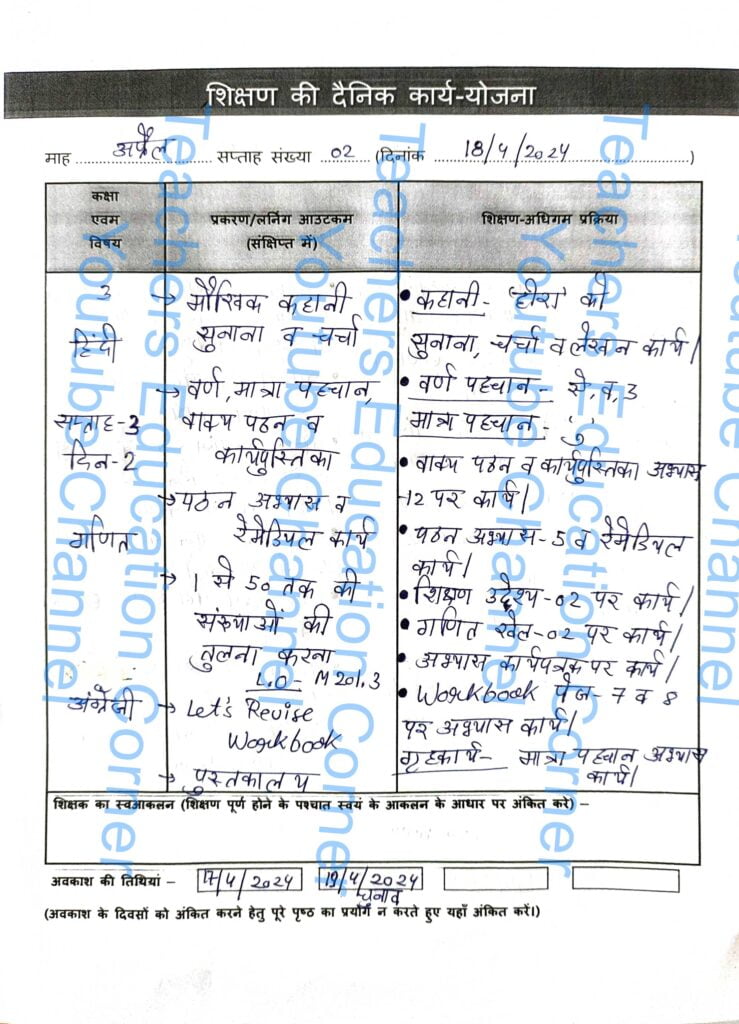 शिक्षण की दैनिक कार्य-योजना
माह अप्रैल सप्ताह संख्या 02 (दिनांक 18/4/2024)
कक्षा
एवम
विषय
प्रकरण/लर्निंग आउटकम
(संक्षिप्त में)
शिक्षण-अधिगम प्रक्रिया
3
हिंदी
सप्ताह-3
दिन-2
गणित
अंग्रेजी
→ मौखिक कहानी
सुनाना व चर्चा
→ वर्ण, मात्रा पहचान,
वाक्य पठन व
कार्यपुस्तिका
→ पठन अभ्यास व
रेमेडियल कार्य
→ 1 से 50 तक की
संख्याओं की
तुलना करना
L.O- M201.3
→ Let's Revise
Workbook
→ पुस्तकालय
• कहानी- 'हीरा' की
सुनाना, चर्चा व लेखन कार्य।
• वर्ण पहचान- से, व, 3
मात्रा पहचान- ु
• वाक्य पठन व कार्यपुस्तिका अभ्यास
-12 पर कार्य।
• पठन अभ्यास-5 व रेमेडियल
कार्य।
• शिक्षण उद्देश्य-02 पर कार्य।
• गणित खेल-02 पर कार्य।
• अभ्यास कार्यपत्रक पर कार्य।
• Workbook पेज- 7 व 8
पर अभ्यास कार्य।
गृहकार्य- मात्रा पहचान अभ्यास
कार्य।
शिक्षक का स्वआकलन (शिक्षण पूर्ण होने के पश्चात स्वयं के आकलन के आधार पर अंकित करे) –
अवकाश की तिथियां – 17/4/2024 19/4/2024
चुनाव
(अवकाश के दिवसों को अंकित करने हेतु पूरे पृष्ठ का प्रयोग न करते हुए यहाँ अंकित करें।)
Teachers Education Corner
Youtube Channel
Teachers Education Corner
Youtube Channel
Teachers Education Corner
Youtube Channel